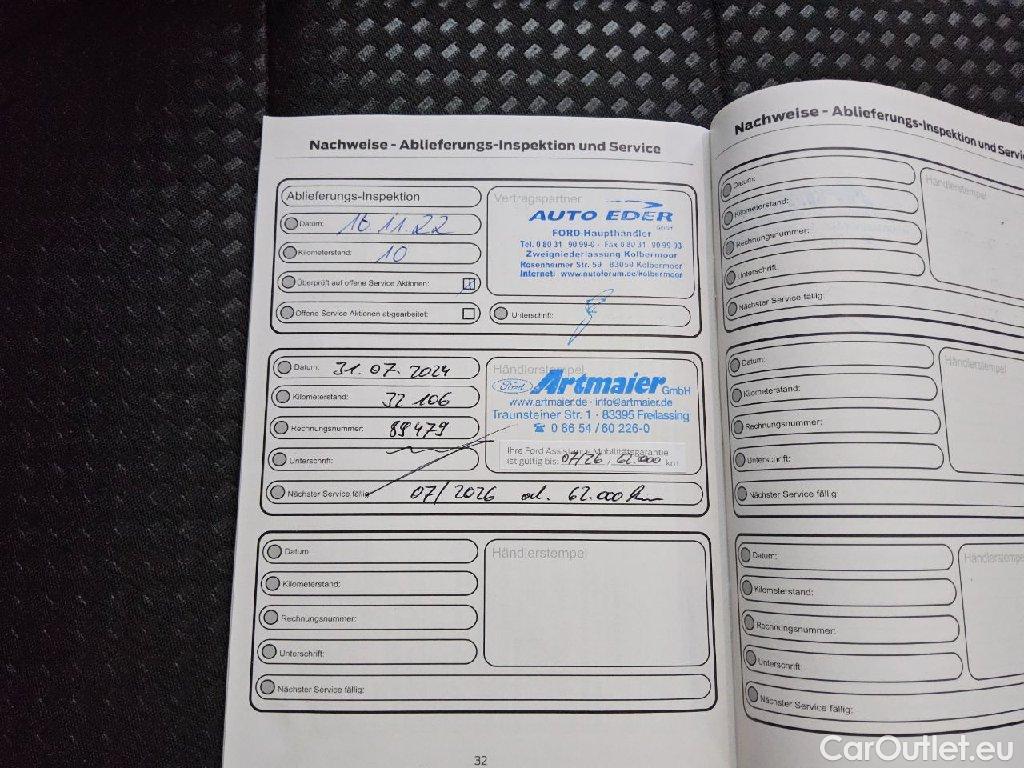 Nachweise - Ablieferungs-Inspektion und Service
Ablieferungs-Inspektion
Datum: 16.11.22
Kilometerstand: 10
Überprüft auf offene Service Aktionen:
Offene Service Aktionen abgearbeitet:
Vertragspartner
AUTO EDER
GmbH
FORD-Haupthändler
Tel. 0 80 31 · 90 99-0 · Fax 0 80 31 · 90 99 03
Zweigniederlassung Kolbermoor
Rosenheimer Str. 59 · 83059 Kolbermoor
Internet: www.autoforum.de/kolbermoor
Unterschrift:
Datum: 31.07.2024
Kilometerstand: 32 106
Rechnungsnummer: 89479
Unterschrift:
Nächster Service fällig: 07/2026 od. 62.000 km
Händlerstempel
Ford Artmaier GmbH
www.artmaier.de · info@artmaier.de
Traunsteiner Str. 1 · 83395 Freilassing
☎ 0 86 54 / 60 226-0
Ihre Ford Assistance Mobilitätsgarantie
ist gültig bis: 07/26, 62.000 km
Datum:
Kilometerstand:
Rechnungsnummer:
Unterschrift:
Nächster Service fällig:
Händlerstempel
32
Nachweise - Ablieferungs-Inspektion und Servic
Datum:
Kilometerstand:
Rechnungsnummer:
Unterschrift:
Nächster Service fällig:
Händlerstempel
Datum:
Kilometerstand:
Rechnungsnummer:
Unterschrift:
Nächster Service fällig:
Händlerstempel
Datum:
Kilometerstand:
Rechnungsnummer:
Unterschrift
Nächster Service fällig:
Händlerstempel
CarOutlet.eu